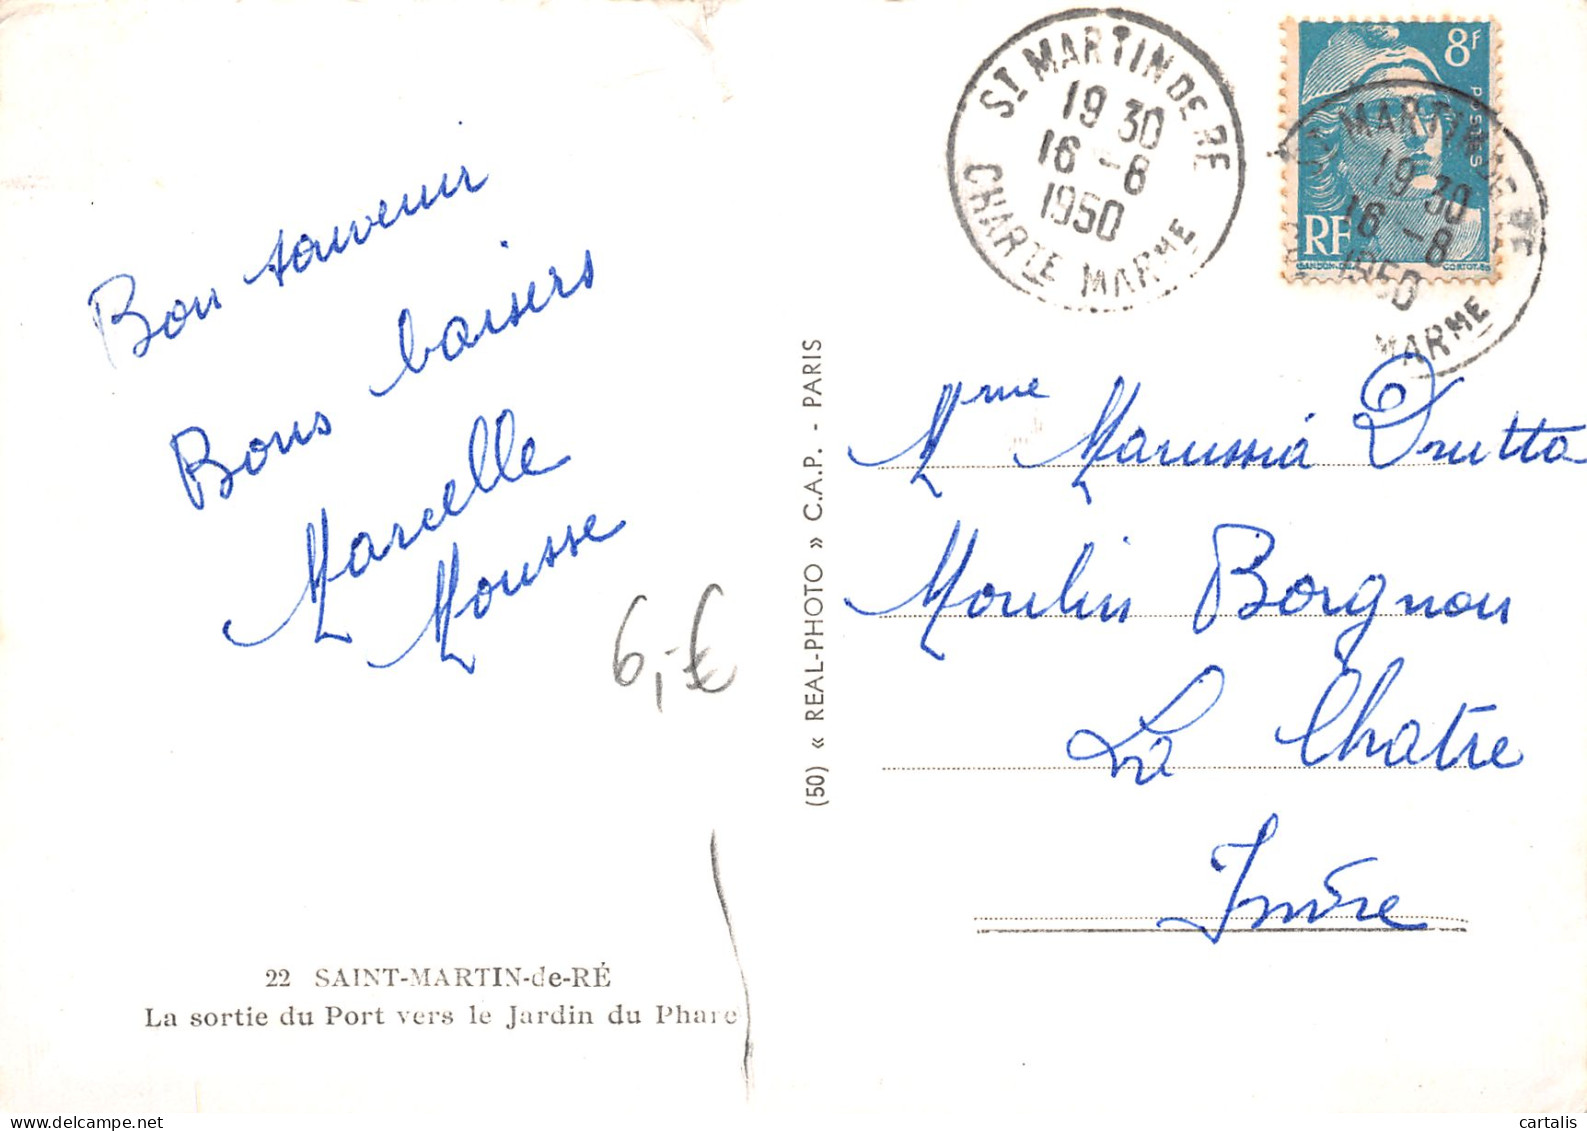 Bon souvenir
Bons baisers
Marcelle
Mousse
6,-€
22 SAINT-MARTIN-de-RÉ
La sortie du Port vers le Jardin du Phare
(50) « REAL-PHOTO » C.A.P. - PARIS
ST MARTIN DE RE
19 30
16 -8
1950
CHARTE MARME
8F
POSTES
RF
GANDON
CORTOT
MARTIN DE RE
19 30
16 -8
1950
MARME
Mme Marussia Drutta
Moulin Borgnon
La Chatre
Indre
cartalis